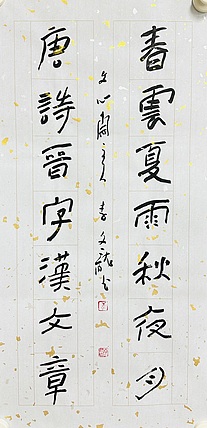 春雲夏雨秋夜月
唐詩晉字漢文章
文心閣主人 李文